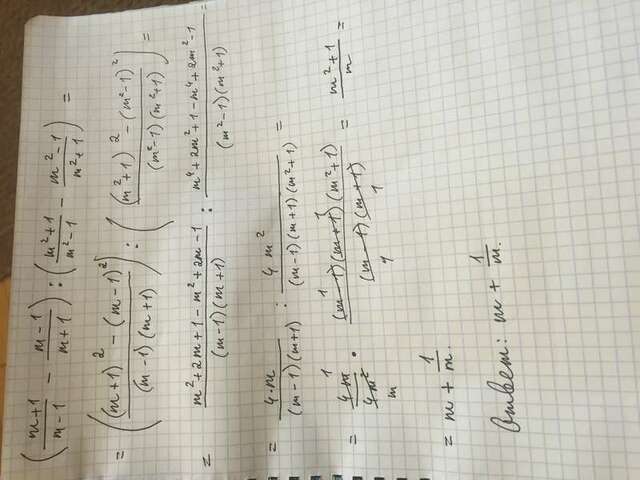 ((m+1)/(m-1) - (m-1)/(m+1)) : ((m²+1)/(m²-1) - (m²-1)/(m²+1)) =
= (((m+1)² - (m-1)²)/((m-1)(m+1))) : (((m²+1)² - (m²-1)²)/((m²-1)(m²+1))) =
= (m²+2m+1-m²+2m-1)/((m-1)(m+1)) : (m⁴+2m²+1-m⁴+2m²-1)/((m²-1)(m²+1)) =
= (4·m)/((m-1)(m+1)) : (4m²)/((m-1)(m+1)(m²+1)) =
= (4m)/(4m²) · ((m-1)(m+1)(m²+1))/((m-1)(m+1)) = (m²+1)/m =
= m + 1/m.
Ответ: m + 1/m.